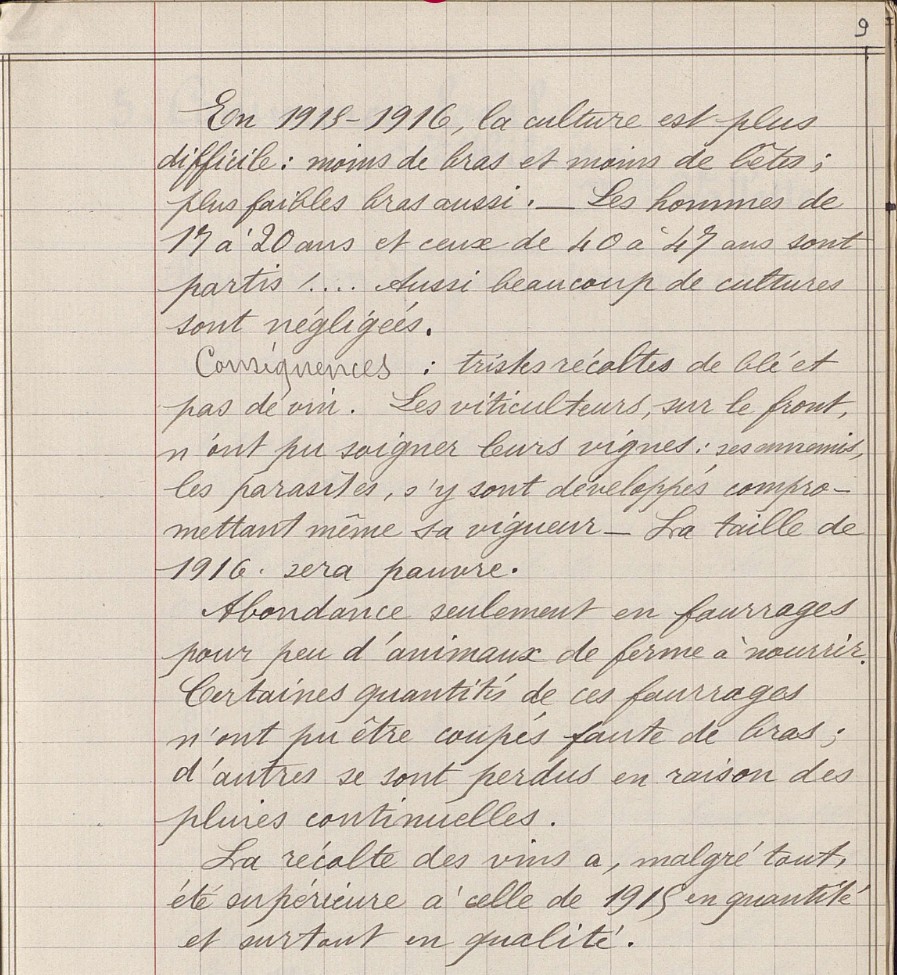 9
En 1915-1916, la culture est plus
difficile : moins de bras et moins de bêtes ;
plus faibles bras aussi. — Les hommes de
17 à 20 ans et ceux de 40 à 47 ans sont
partis !.... Aussi beaucoup de cultures
sont négligées.
Conséquences : tristes récoltes de blé et
pas de vin. Les viticulteurs, sur le front,
n'ont pu soigner leurs vignes : ses ennemis,
les parasites, s'y sont développés compro-
mettant même sa vigueur — La taille de
1916. sera pauvre.
Abondance seulement en fourrages
pour peu d'animaux de ferme à nourrir.
Certaines quantités de ces fourrages
n'ont pu être coupés faute de bras ;
d'autres se sont perdus en raison des
pluies continuelles.
La récolte des vins a, malgré tout,
été supérieure à celle de 1915 en quantité
et surtout en qualité.